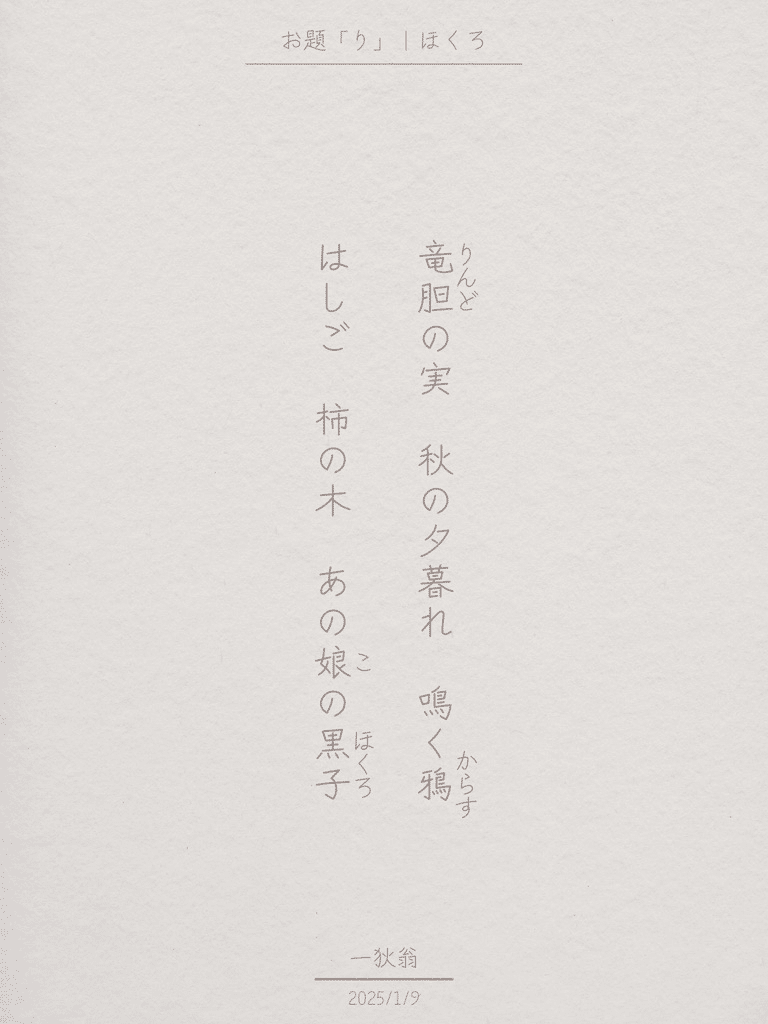 お題「り」|ほくろ
竜胆の実　秋の夕暮れ　鳴く鴉
りんど
からす
はしご　柿の木　あの娘の黒子
こ
ほくろ
一狄翁
2025/1/9